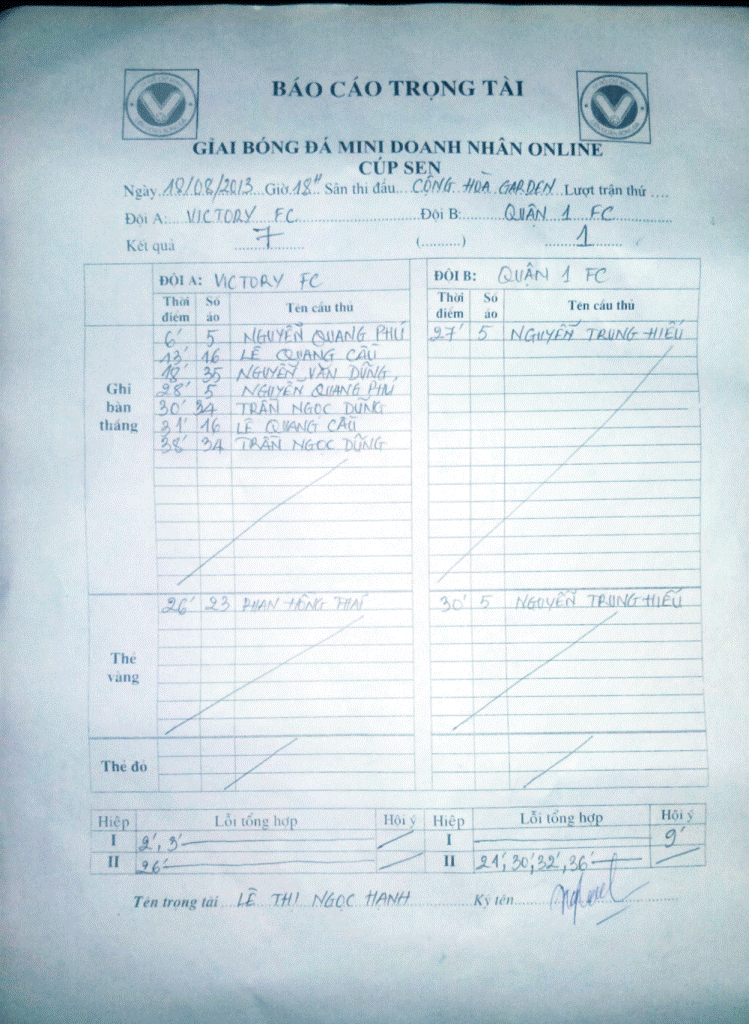 BÁO CÁO TRỌNG TÀI
GIẢI BÓNG ĐÁ MINI DOANH NHÂN ONLINE
CÚP SEN
Ngày 18/08/2013 Giờ 18H Sân thi đấu CỘNG HOÀ GARDEN Lượt trận thứ ....
Đội A: VICTORY FC Đội B: QUẬN 1 FC
Kết quả 7 (..........) 1
ĐỘI A: VICTORY FC ĐỘI B: QUẬN 1 FC
Thời điểm Số áo Tên cầu thủ Thời điểm Số áo Tên cầu thủ
Ghi bàn thắng
6' 5 NGUYỄN QUANG PHÚ 27' 5 NGUYỄN TRUNG HIẾU
13' 16 LÊ QUANG CẦU
18' 35 NGUYỄN VĂN DŨNG
28' 5 NGUYỄN QUANG PHÚ
30' 34 TRẦN NGỌC DŨNG
31' 16 LÊ QUANG CẦU
38' 34 TRẦN NGỌC DŨNG
Thẻ vàng
26' 23 PHAN HỒNG THÁI 30' 5 NGUYỄN TRUNG HIẾU
Thẻ đỏ
Hiệp Lỗi tổng hợp Hội ý Hiệp Lỗi tổng hợp Hội ý
I 2', 3' I 9'
II 26' II 21', 30', 32', 36'
Tên trọng tài LÊ THỊ NGỌC HẠNH Ký tên